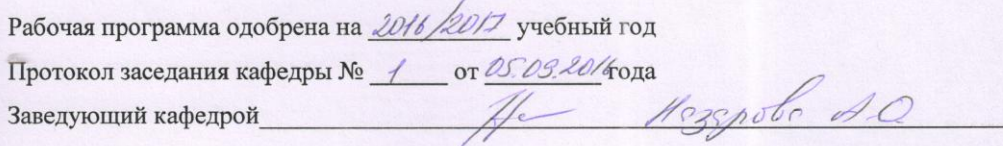 Рабочая программа одобрена на 2016/2017 учебный год
Протокол заседания кафедры № 1 от 05.09.2016 года
Заведующий кафедрой Назарова А О